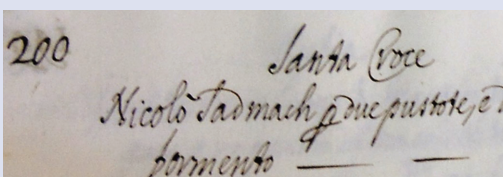 200
Santa Croce
Nicolò Tadmach p due pustote, e
formento